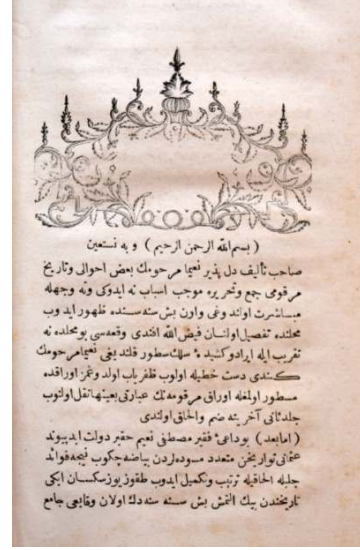 ( بسم الله الرحمن الرحيم ) وبه نستعين
صاحب تأليف دل پذير نعيما مرحومك بعض احوالى وتاريخ
مرقومى جمع وتحريره موجب اسباب نه ايدوكى ونه وجهله
مباشرت اولندوغنى واون بش سنه سنده ظهور ايدوب
محلنده تفصيل اولنان فيض الله افندى وقعه سى بو محلده نه
تقريب ايله ايراد وكشيدهٔ سلك سطور قلنديغى نعيما مرحومك
كندى دست خطيله اولوب ظفرياب اولدوغمز اوراقده
مسطور اولمغله اوراق مرقومه نك عبارتى بعينها نقل اولنوب
جلد ثانى آخرينه ضم والحاق اولندى
( اما بعد ) بو داعئ فقير مصطفى نعيم حقير دولت ابد پيوند
عثمانى تواريخن متعدد مسوده لردن بياضه چكوب نيجه فوائد
جليله الحاقيله ترتيب وتكميل ايدوب طقوز يوز سكسان ايكى
تاريخندن بيك التمش بش سنه سنه دك اولان وقايعى جامع